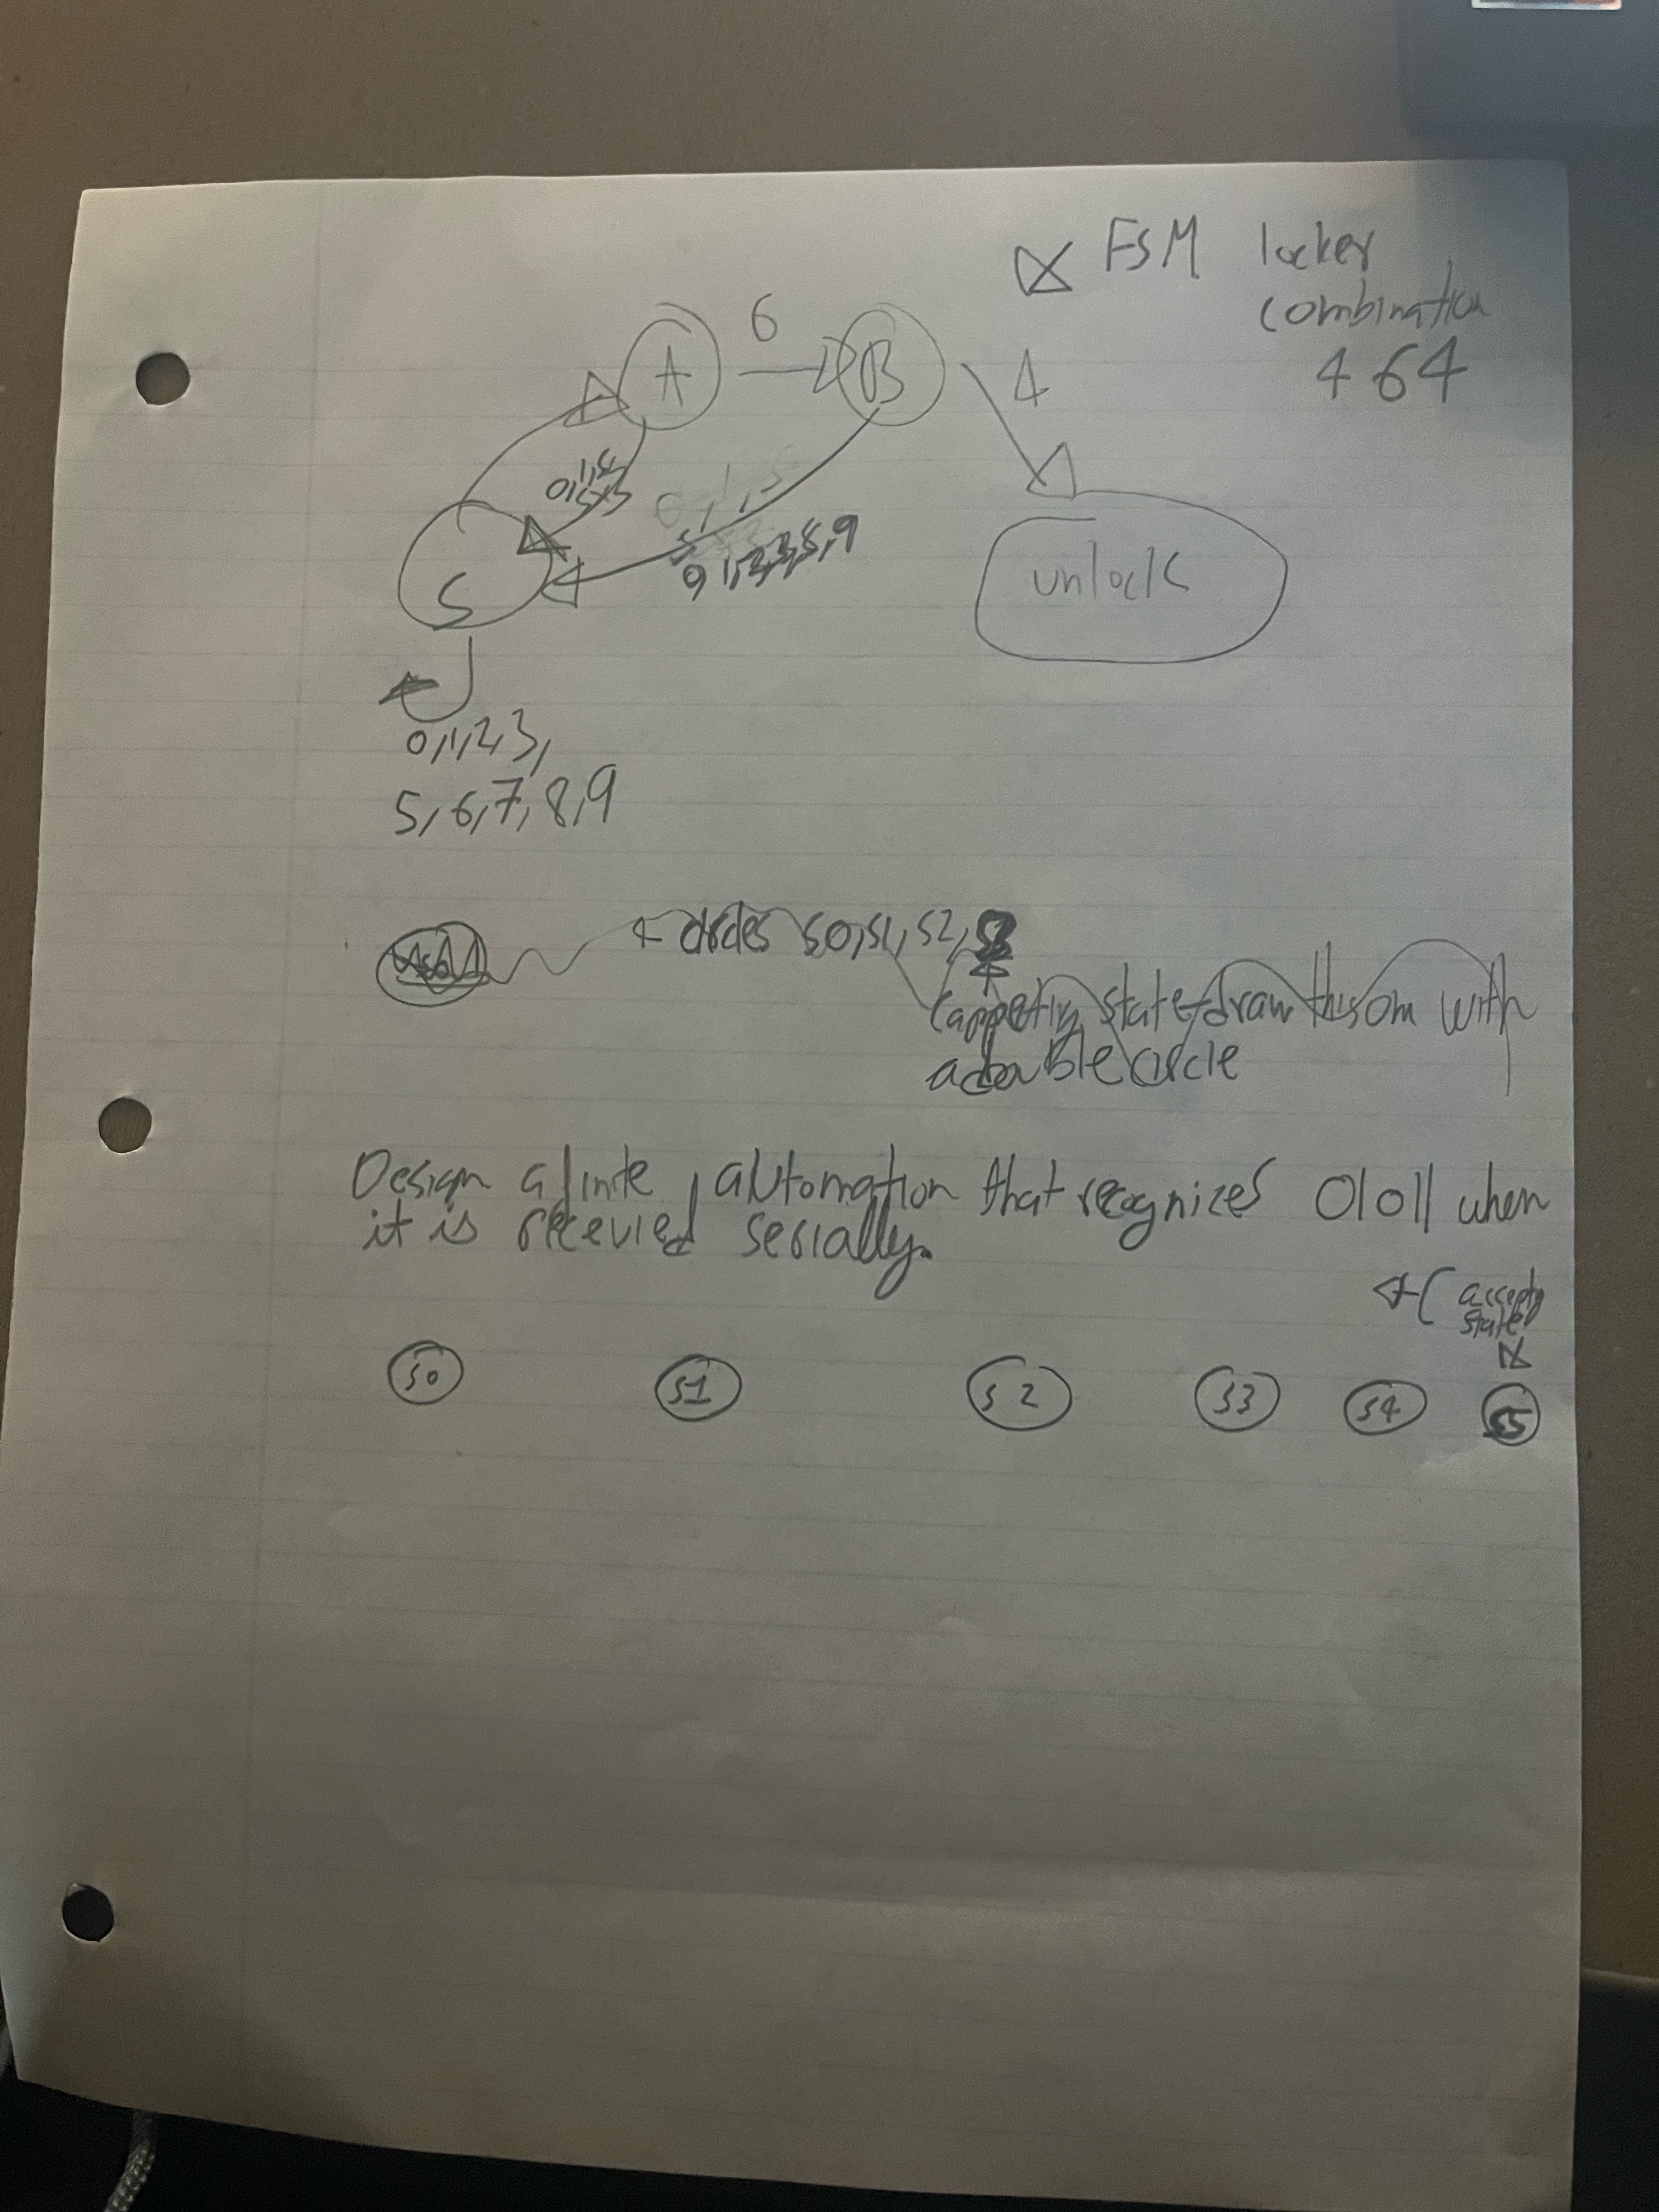 FSM locker
combination
464
A 6 B 4
S
unlock
0,1,2,3,
5,6,7,8,9
circles S0, S1, S2,
state draw this with
a double circle
Design a finite automation that recognizes 01011 when
it is recevied serially.
state
S0 S1 S2 S3 S4 S5